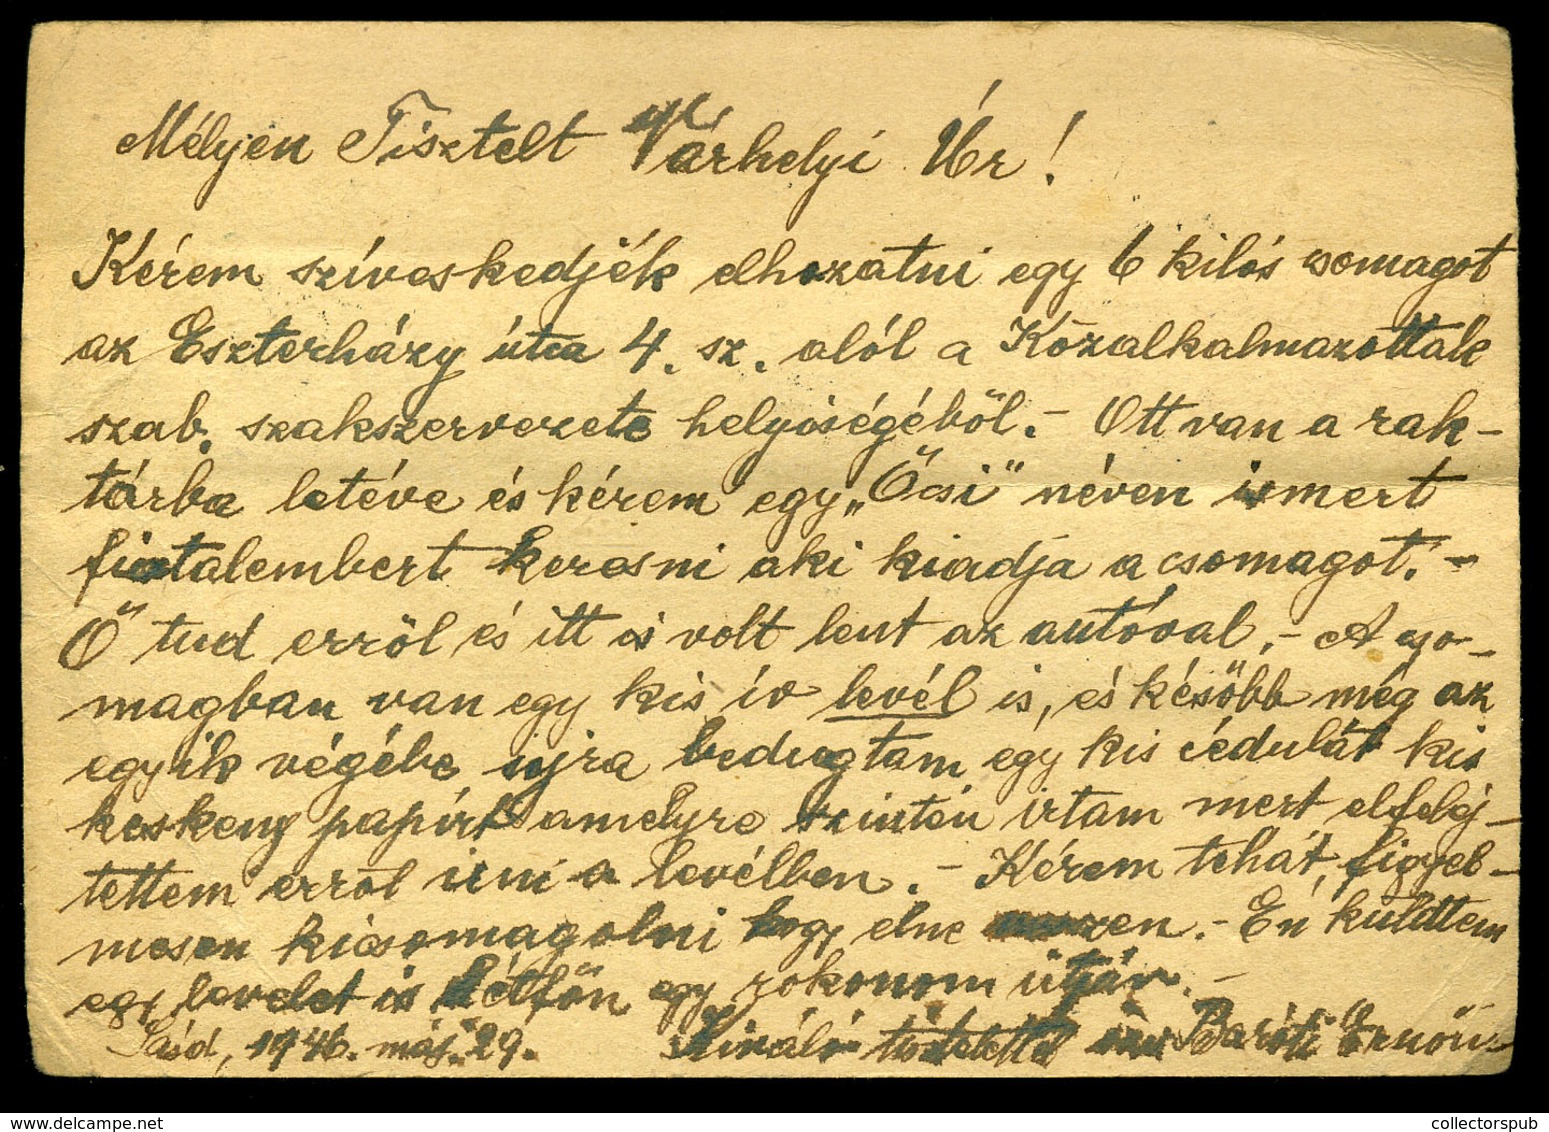 Mélyen Tisztelt Várhelyi Úr!
Kérem szíveskedjék elhozatni egy 6 kilós csomagot
az Eszterházy útca 4. sz. alól a Közalkalmazottak
szab. szakszervezete helyiségéből.- Ott van a rak-
tárba letéve és kérem egy „Öcsi" néven ismert
fiatalembert keresni aki kiadja a csomagot.-
Ő tud erről és itt is volt lent az autóval.- A cso-
magban van egy kis ív levél is, és később még az
egyik végébe ujra bedugtam egy kis cédulát kis
keskeny papírt amelyre szintén irtam mert elfelej-
tettem erről irni a levélben.- Kérem tehát, figyel-
mesen kicsomagolni hogy elne vesszen.- Én küldtem
egy levelet is hétfőn egy rokonom útján.-
Sásd, 1946. máj. 29. Kiváló tisztelettel Baróti Ernőné
collectorspub.com